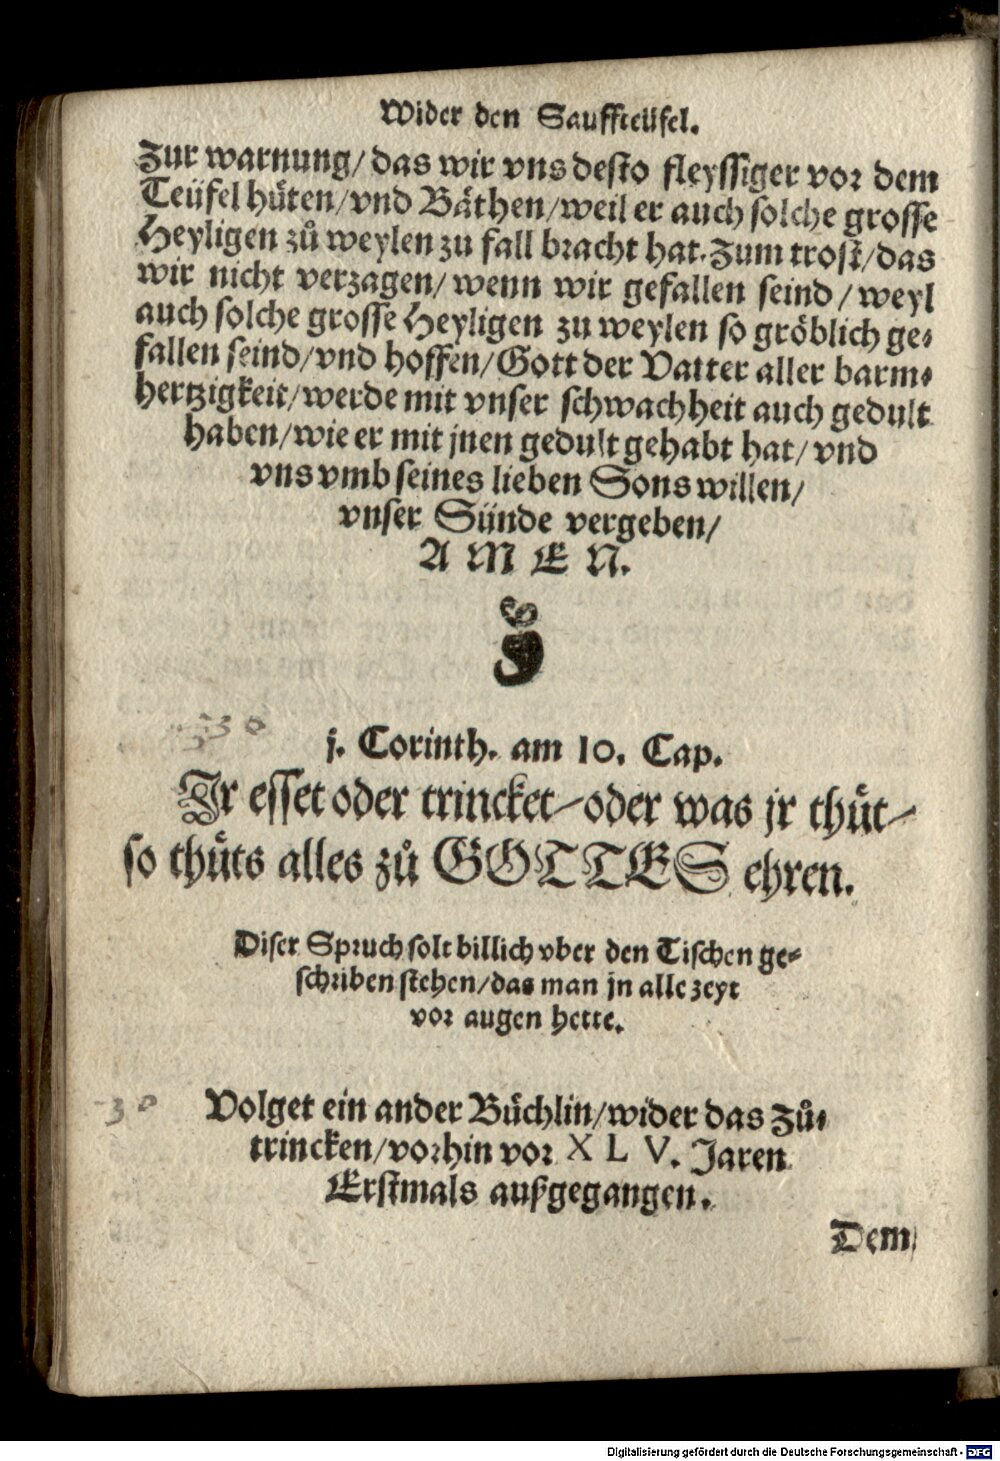 Wider den Sauffteüfel.
Zur warnung/ das wir vns desto fleyssiger vor dem
Teüfel hüten/vnd Bäthen/weil er auch solche grosse
Heyligen zů weylen zu fall bracht hat. Zum trost/das
wir nicht verzagen/ wenn wir gefallen seind/ weyl
auch solche grosse Heyligen zu weylen so gröblich ge-
fallen seind/vnd hoffen/Gott der Vatter aller barm-
hertzigkeit/werde mit vnser schwachheit auch gedult
haben/wie er mit jnen gedult gehabt hat/ vnd
vns vmb seines lieben Sons willen/
vnser Sünde vergeben/
A M E N.
j. Corinth. am 10. Cap.
Ir esset oder trincket/oder was jr thüt/
so thüts alles zů GOTTES ehren.
Diser Spruch solt billich vber den Tischen ge-
schriben stehen/das man jn alle zeyt
vor augen hette.
30
Volget ein ander Büchlin/wider das Zů-
trincken/vorhin vor X L V. Jaren
Erstmals außgegangen.
Dem
Digitalisierung gefördert durch die Deutsche Forschungsgemeinschaft - DFG